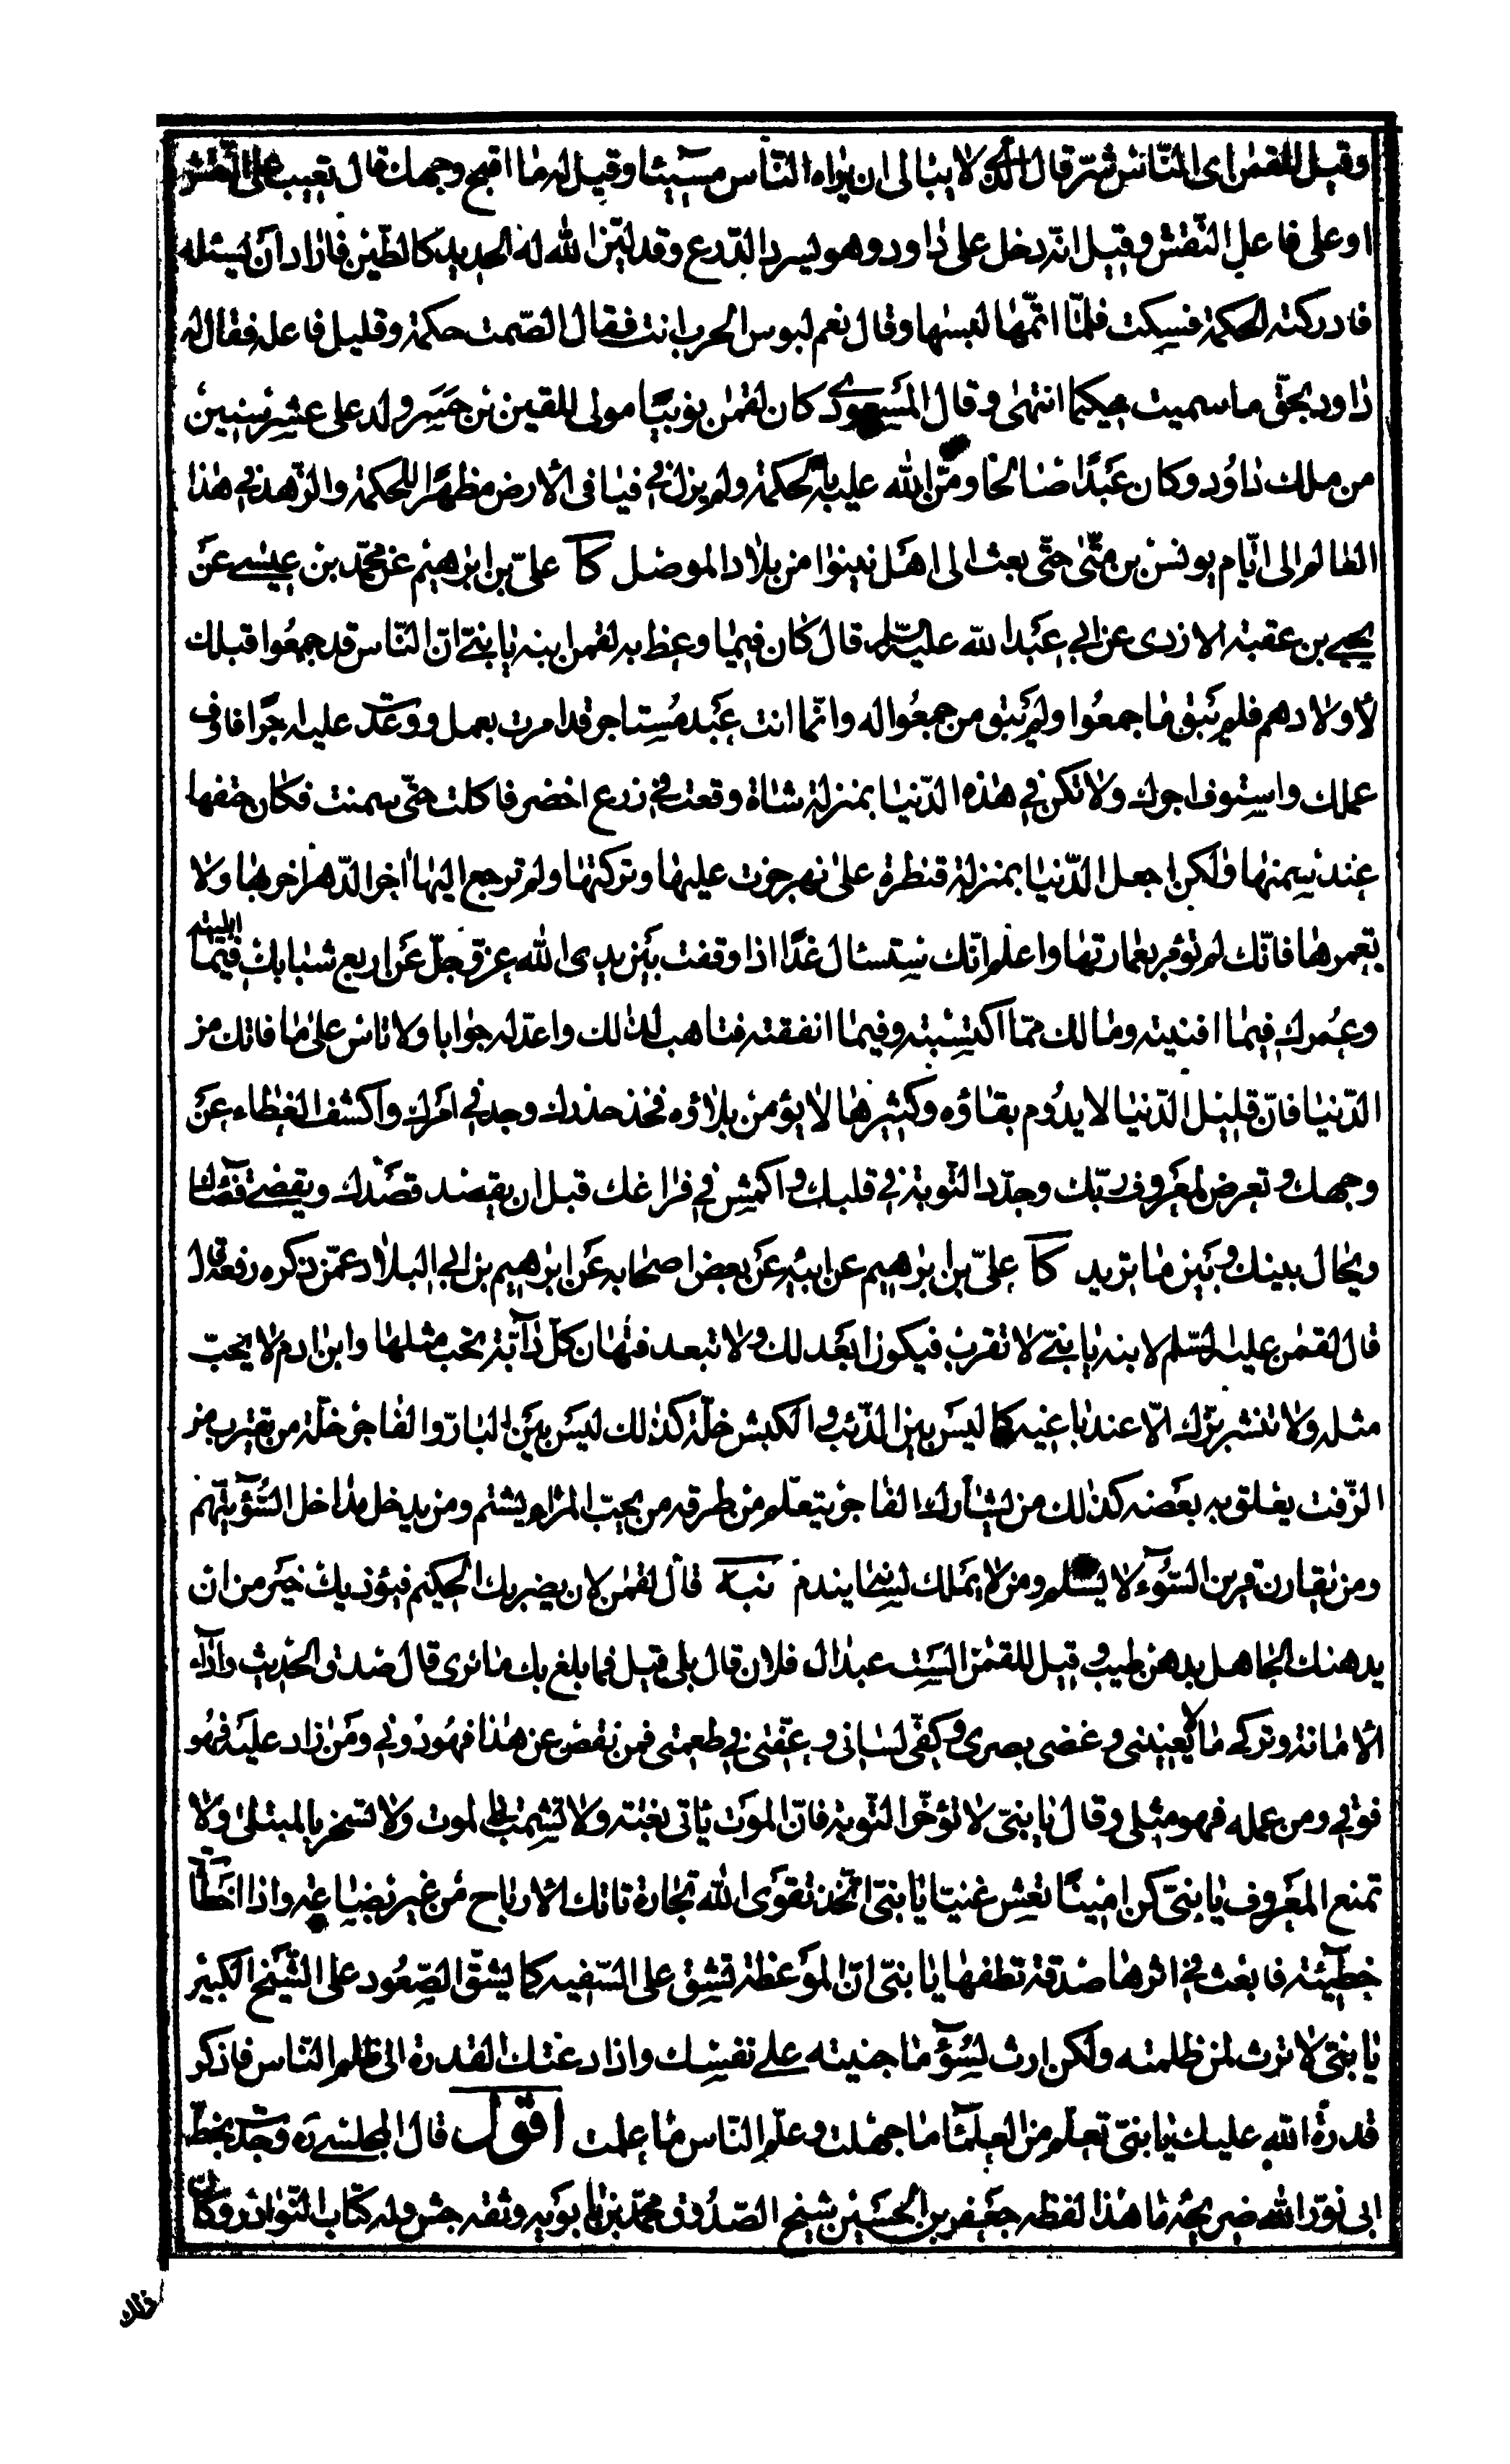 وقيل للقمن اى النّاس شرّ قال الّذى لا يبالى ان يراه النّاس مسيئا وقيل له ما اقبح وجهك قال تعيب على النّقش
او على فاعل النّقش وقيل انّه دخل على داود وهو يسرد الدّرع وقد ليّن الله له الحديد كالطّين فاراد ان يسئله
فادركته الحكمة فسكت فلمّا اتمّها لبسها وقال نعم لبوس الحرب انت فقال الصّمت حكمة وقليل فاعله فقال له
داود بحقّ ما سميت حكيما انتهى وقال المسعودى كان لقمن نوبيّا مولى للقين بن جسر ولد على عشر سنين
من ملك داود وكان عبدا صالحا ومنّ الله عليه بالحكمة ولم يزل فى فيافى الارض مظهرا للحكمة والزّهد فى هذا
العالم الى ايّام يونس بن متّى حتّى بعث الى اهل نينوا من بلاد الموصل كا علىّ بن ابرهيم عن محمّد بن عيسى عن
يحيى بن عقبة الازدى عن ابى عبد الله عليه السّلم قال كان فيما وعظ به لقمن ابنه يا بنىّ انّ النّاس قد جمعوا قبلك
لاولادهم فلم يبق ما جمعوا ولم يبق من جمعوا له وانّما انت عبد مستاجر قد امرت بعمل ووعدت عليه اجرا فاوف
عملك واستوف اجرك ولا تكن فى هذه الدّنيا بمنزلة شاة وقعت فى زرع اخضر فاكلت حتّى سمنت فكان حتفها
عند سمنها ولكن اجعل الدّنيا بمنزلة قنطرة على نهر جزت عليها وتركتها ولم ترجع اليها اخر الدّهر اخربها ولا
تعمرها فانّك لم تؤمر بعمارتها واعلم انّك ستسئال غدا اذا وقفت بين يدى الله عزّ وجلّ عن اربع شبابك فيما ابليته
وعمرك فيما افنيته ومالك ممّا اكتسبته وفيما انفقته فتاهب لذلك واعدّ له جوابا ولا تاس على ما فاتك من
الدّنيا فانّ قليل الدّنيا لا يدوم بقاؤه وكثيرها لا يؤمن بلاؤه فخذ حذرك وجد فى امرك واكشف الغطاء عن
وجهك وتعرض لمعروف ربّك وجدّد التّوبة فى قلبك واكمش فى فراغك قبل ان يقصد قصدك ويقضى قضاك
ويحال بينك وبين ما تريد كا علىّ بن ابرهيم عن ابيه عن بعض اصحابه عن ابرهيم بن ابى البلاد عمّن ذكره رفعه قال
قال لقمن عليه السّلم لابنه يا بنىّ لا تقرب فيكون ابعد لك ولا تبعد فتهان كلّ دابّة تحب مثلها وابن ادم لا يحبّ
مثله ولا تنشر بزّك الّا عند باغيه كما ليس بين الذّئب والكبش خلّة كذلك ليس بين البارّ والفاجر خلّة من يقترب من
الزّفت يعلق به بعضه كذلك من يشارك الفاجر يتعلّم من طرقه من يحبّ المراء يشتم ومن يدخل مداخل السّوء يتّهم
ومن يقارن قرين السّوء لا يسلم ومن لا يملك لسانه يندم نبه قال لقمن لان يضربك الحكيم فيؤذيك خير من ان
يدهنك الجاهل بدهن طيب وقيل للقمن الست عبد ال فلان قال بلى قيل فما بلغ بك ما نرى قال صدق الحديث واداء
الامانة وتركى ما لا يعنينى وغضى بصرى وكفّى لسانى وعفّتى فى طعمتى فمن نقص عن هذا فهو دونى ومن زاد عليه فهو
فوقى ومن عمله فهو مثلى وقال يا بنىّ لا تؤخّر التّوبة فانّ الموت ياتى بغتة ولا تشمت بالموت ولا تسخر بالمبتلى ولا
تمنع المعروف يا بنىّ كن امينا تعش غنيّا يا بنىّ اتّخذ تقوى الله تجارة تاتك الارباح من غير بضاعة واذا اخطأت
خطيئة فابعث فى اثرها صدقة تطفها يا بنىّ انّ الموعظة تشق على السّفيه كما يشقّ الصّعود على الشّيخ الكبير
يا بنىّ لا ترث لمن ظلمته ولكن ارث لسوء ما جنيته على نفسك واذا دعتك القدرة الى ظلم النّاس فاذكر
قدرة الله عليك يا بنىّ تعلّم من العلماء ما جهلت وعلّم النّاس ما علمت اقول قال المجلسى ره وجدت بخطّ
ابى نوّر الله ضريحه ما هذا لفظه جعفر بن الحسين شيخ الصّدوق محمّد بن بابويه وثقه جش وله كتاب النّوادر وكان